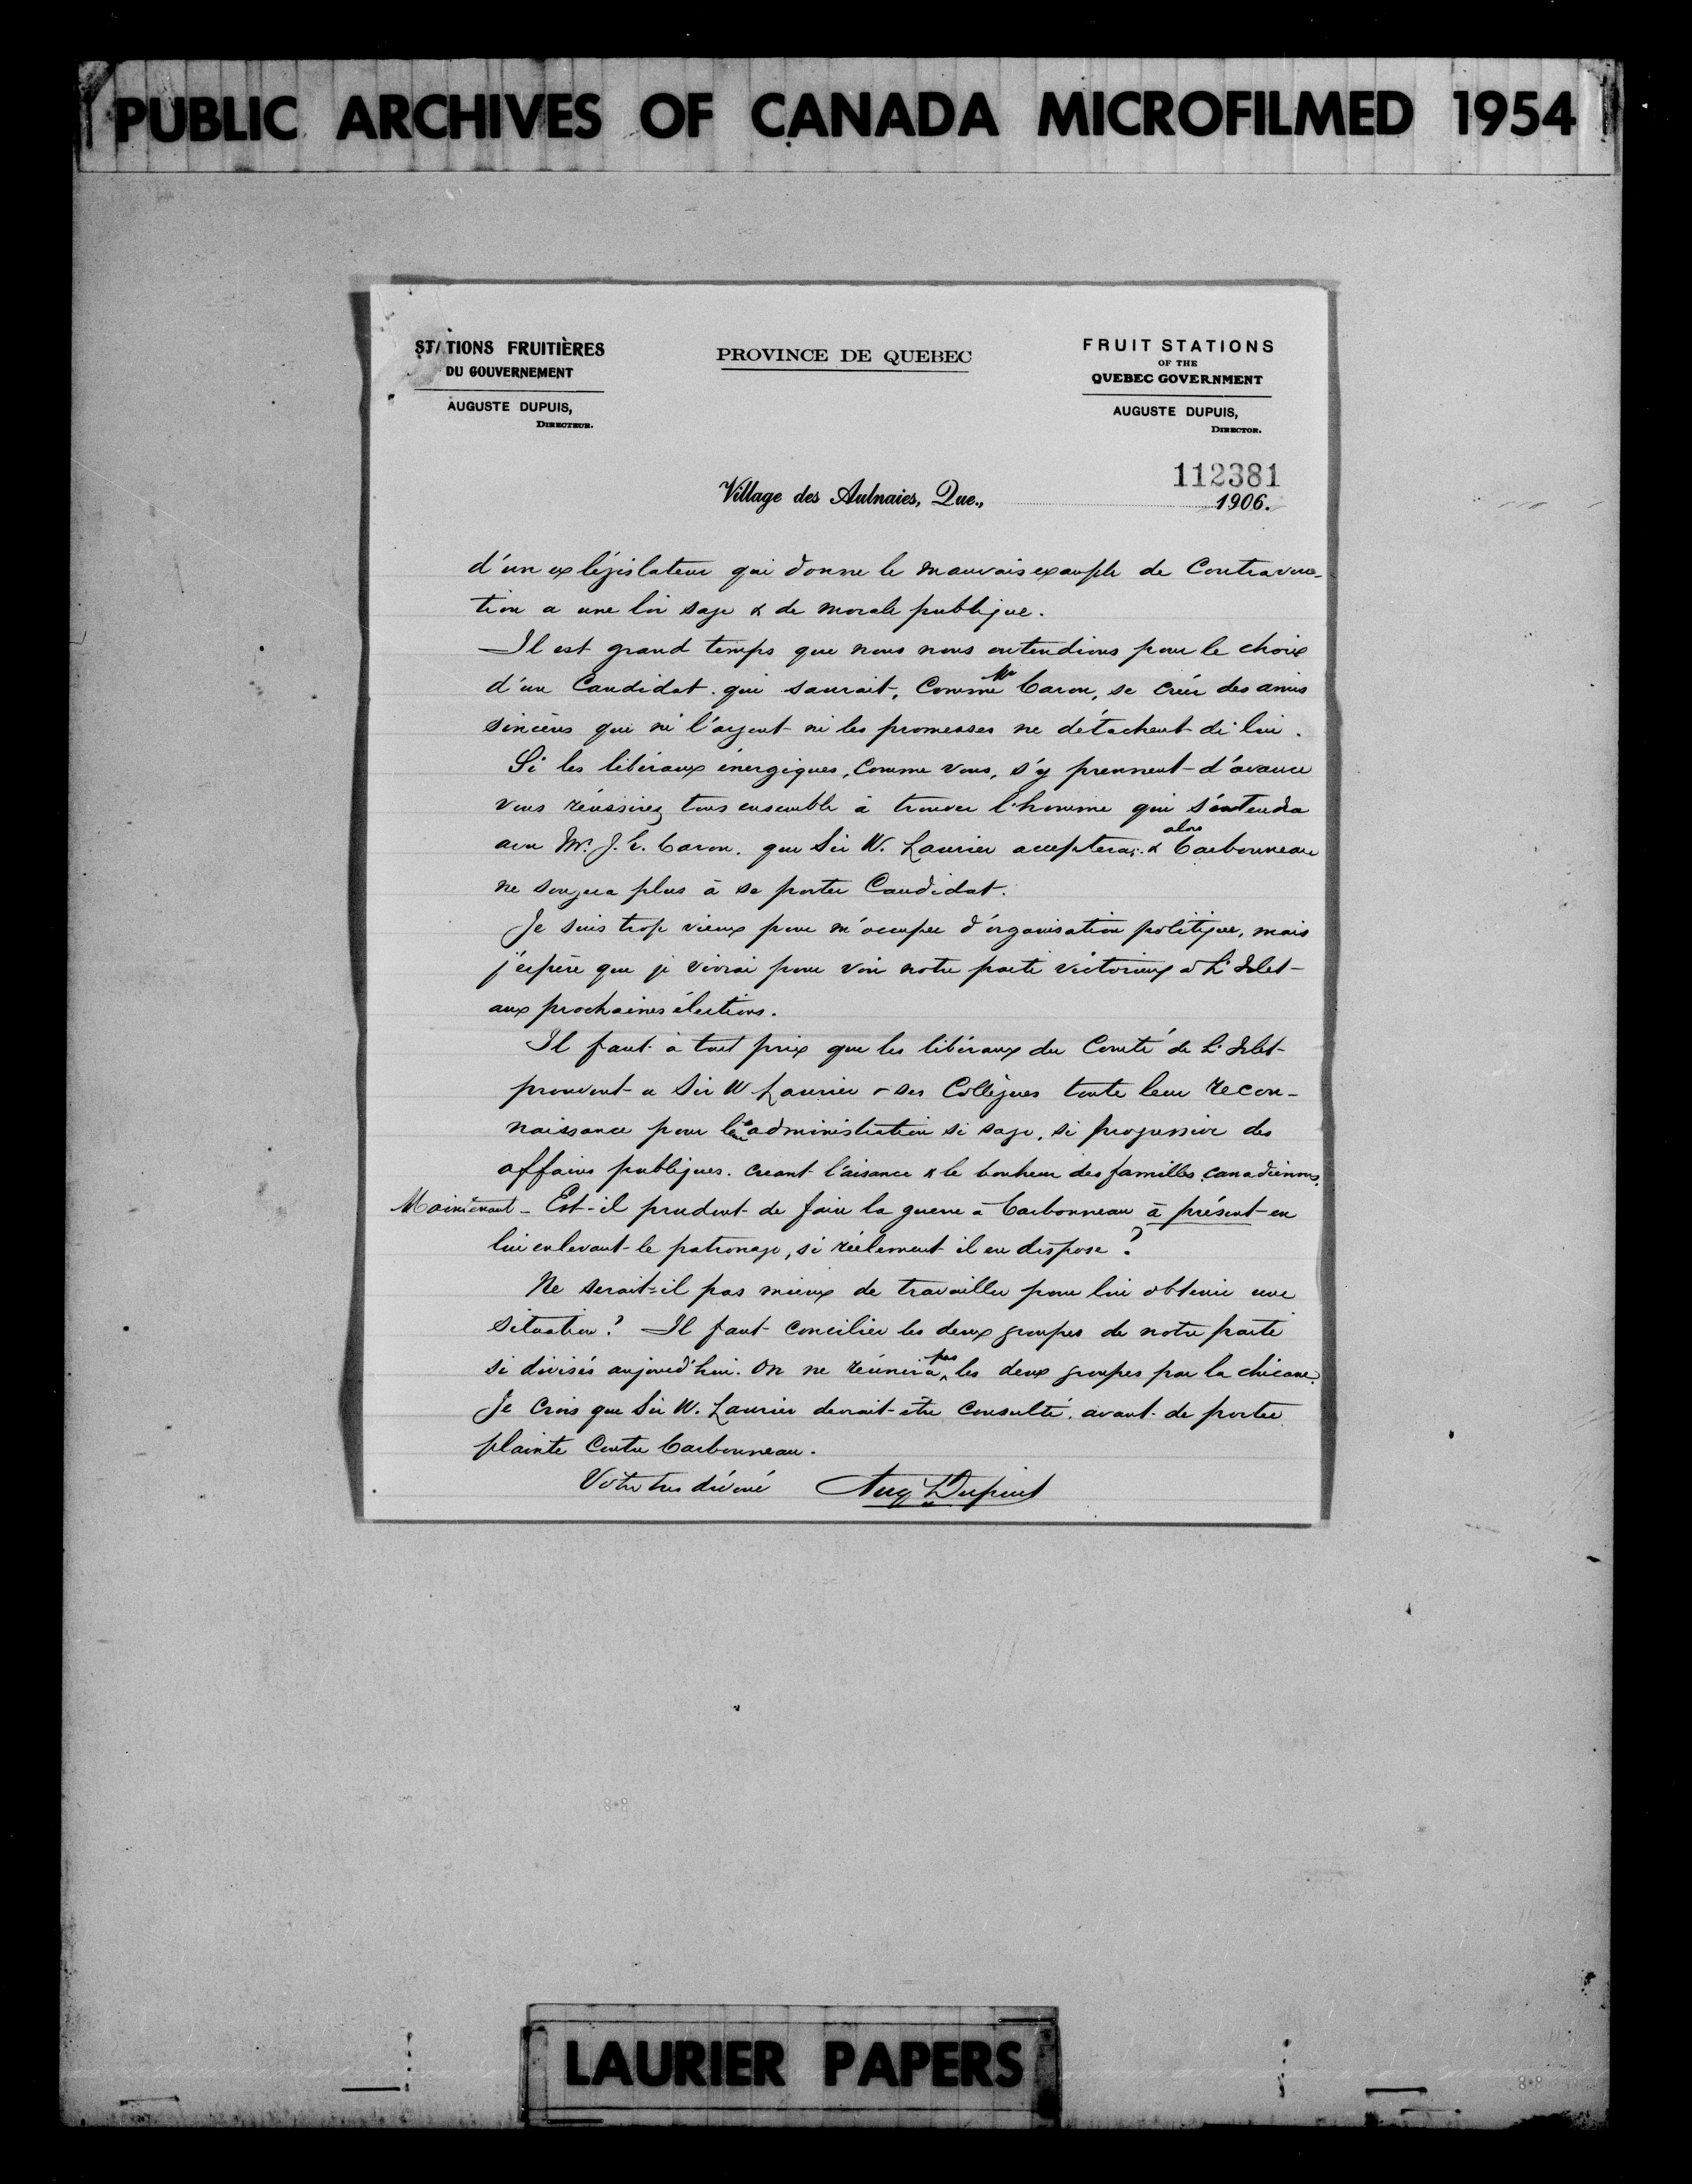 PUBLIC ARCHIVES OF CANADA MICROFILMED 1954
STATIONS FRUITIÈRES
DU GOUVERNEMENT
AUGUSTE DUPUIS,
DIRECTEUR.
PROVINCE DE QUEBEC
FRUIT STATIONS
OF THE
QUEBEC GOVERNMENT
AUGUSTE DUPUIS,
DIRECTOR.
112381
Village des Aulnaies, Que., 1906.
d'un ex législateur qui donne le mauvais exemple de Contraven-
tion a une loi sage & de morale publique.
—Il est grand temps que nous nous entendions pour le choix
d'un Candidat qui saurait, Comme Mr Caron, se créer des amis
sincères que ni l'argent ni les promesses ne détachent de lui.
Si les libéraux énergiques, Comme vous, s'y prennent d'avance
vous réussirez tous ensemble à trouver l'homme qui s'entendra
avec Mr. J. E. Caron. que Sir W. Laurier acceptera; & alors Carbonneau
ne songera plus à se porter Candidat.
Je suis trop vieux pour m'occuper d'organisation politique, mais
j'espère que je vivrai pour voir notre parti victorieux à L'Islet
aux prochaines élections.
Il faut à tout prix que les libéraux du Comté de L'Islet
prouvent a Sir W Laurier & ses Collègues toute leur recon-
naissance pour leur administration si sage, si progressive des
affaires publiques. creant l'aisance & le bonheur des familles canadiennes.
Maintenant - Est-il prudent de faire la guerre à Carbonneau à présent en
lui enlevant le patronage, si réelement il en dispose?
Ne serait-il pas mieux de travailler pour lui obtenir une
situation? Il faut concilier les deux groupes de notre parti
si divisés aujourd'hui. On ne réunira pas les deux groupes par la chicane.
Je Crois que Sir W. Laurier devrait être Consulté. avant de porter
plainte Contre Carbonneau.
Votre tres dévoué Aug Dupuis
LAURIER PAPERS